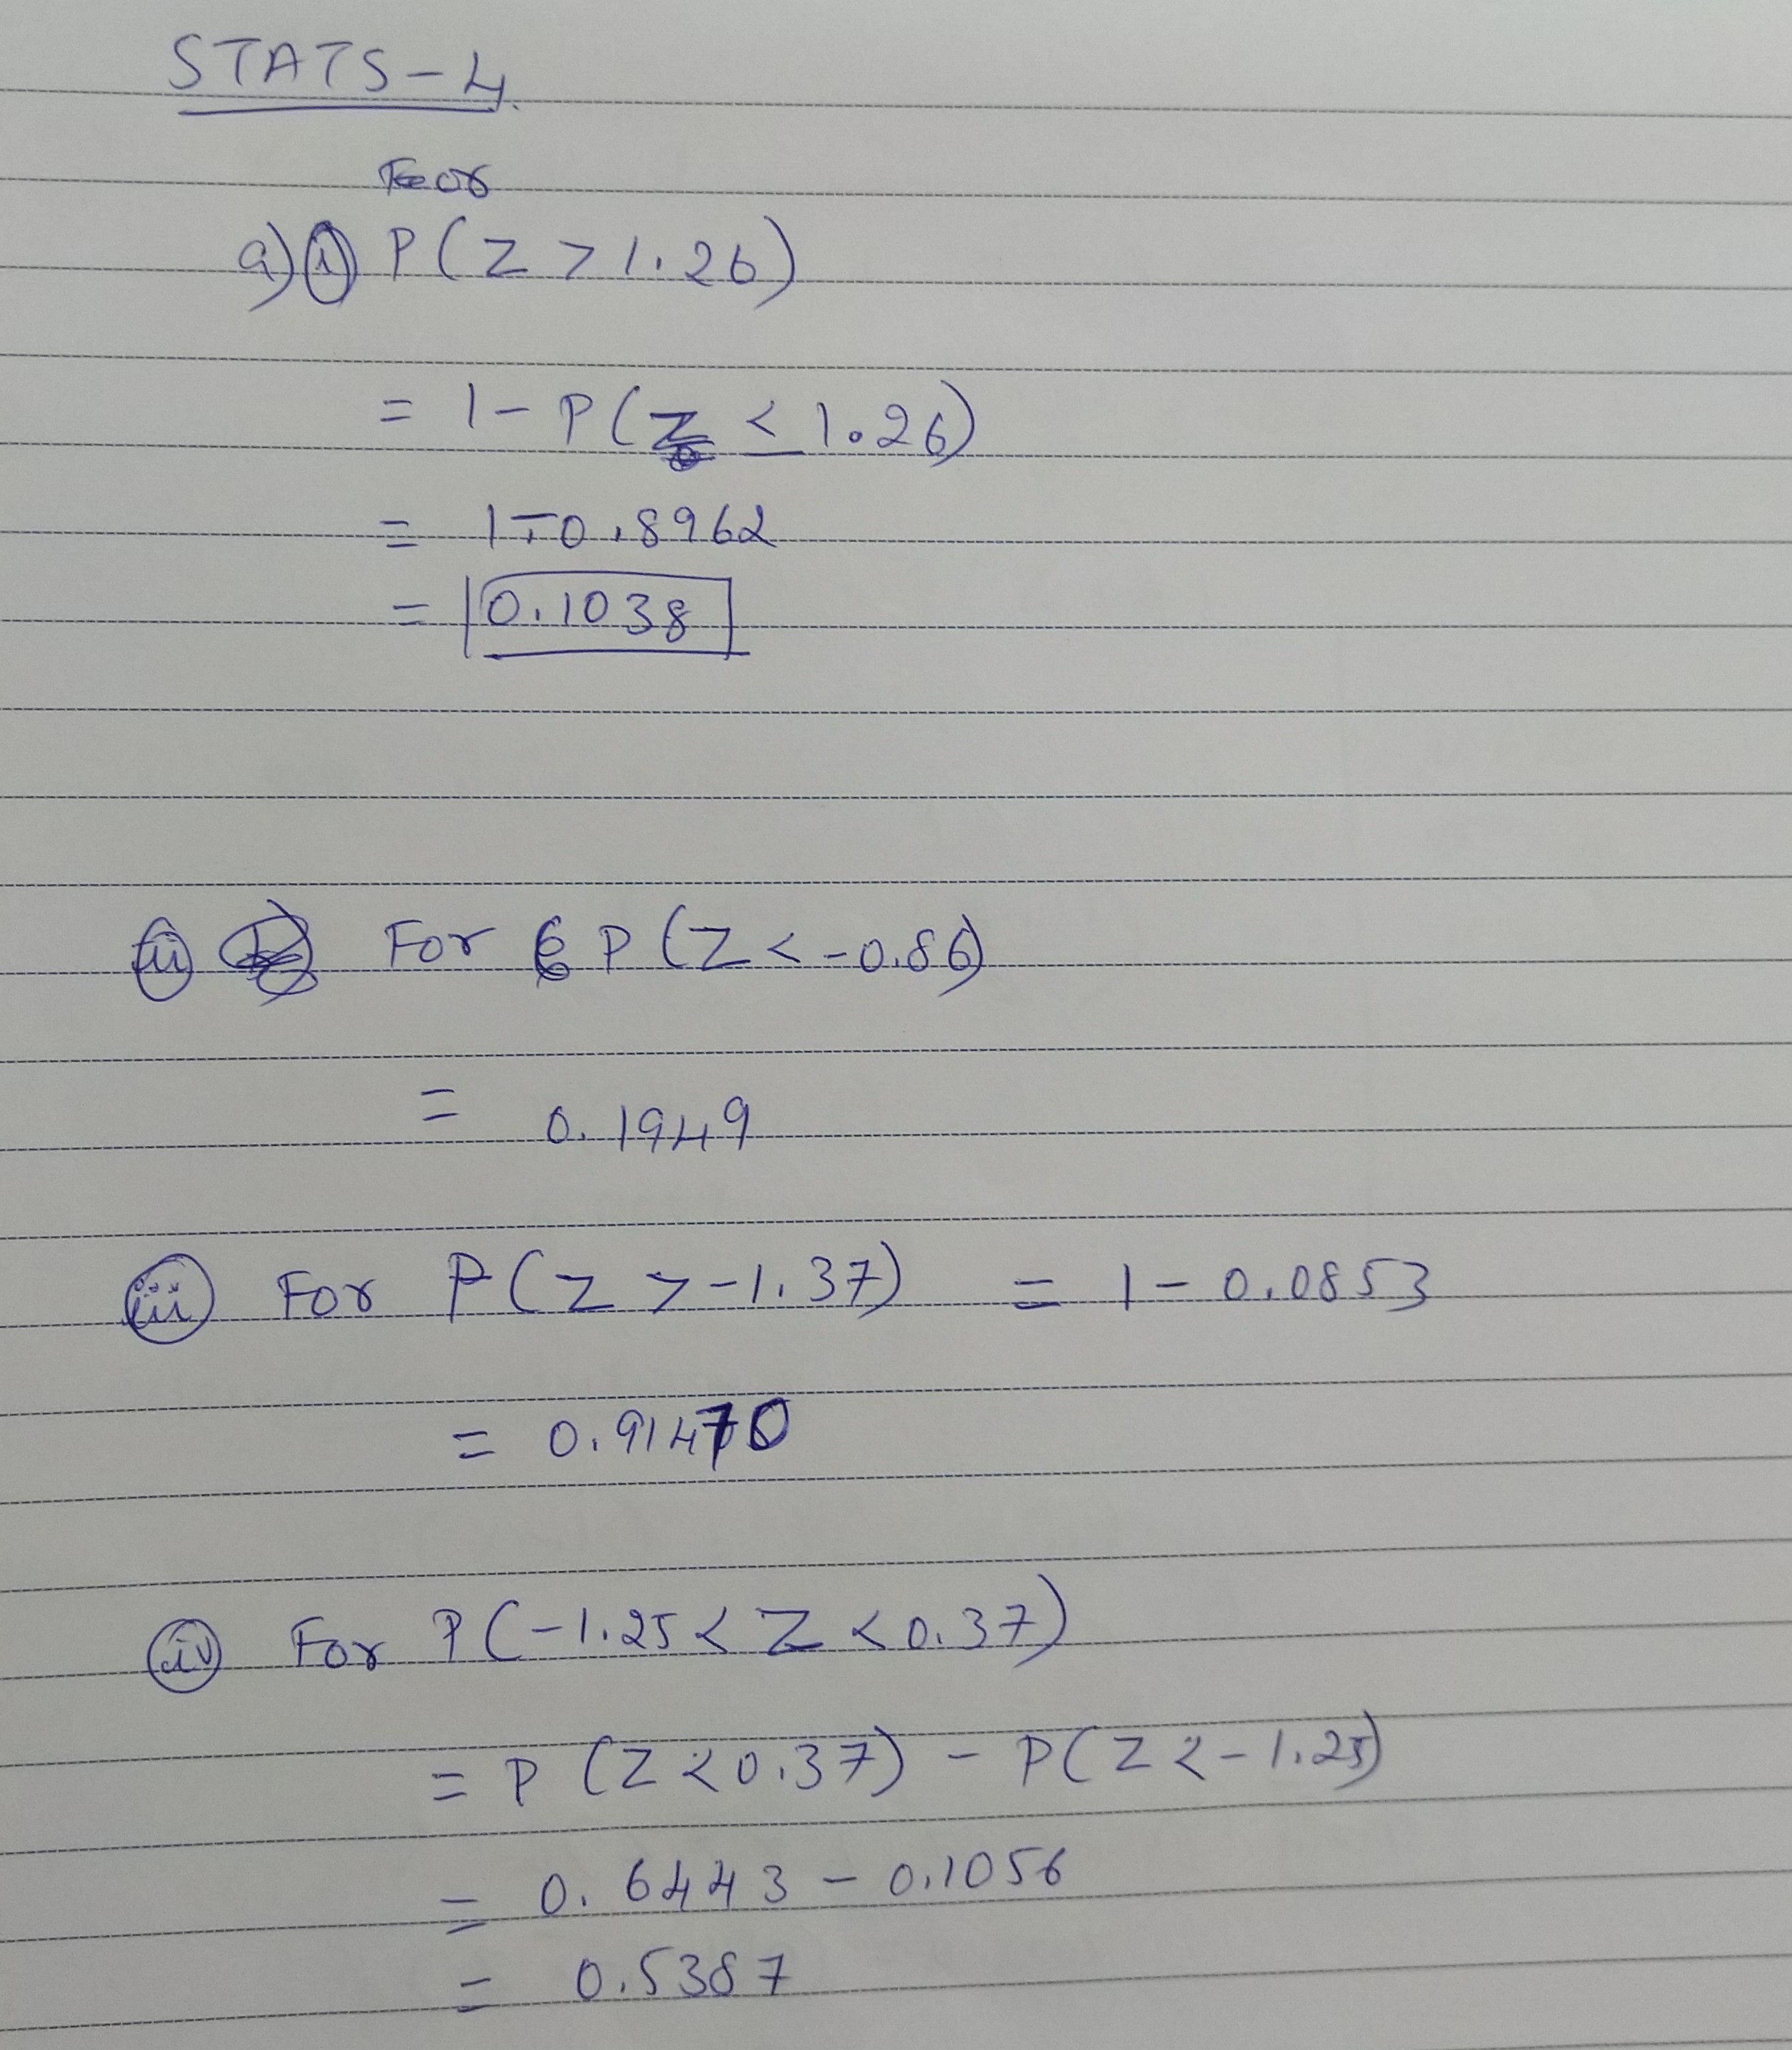 STATS-4.
For
a) i) P(Z > 1.26)
= 1 - P(Z ≤ 1.26)
= 1 - 0.8962
= 0.1038
ii) For P(Z < -0.86)
= 0.1949
iii) For P(Z > -1.37) = 1 - 0.0853
= 0.91470
iv) For P(-1.25 < Z < 0.37)
= P(Z < 0.37) - P(Z < -1.25)
= 0.6443 - 0.1056
= 0.5387